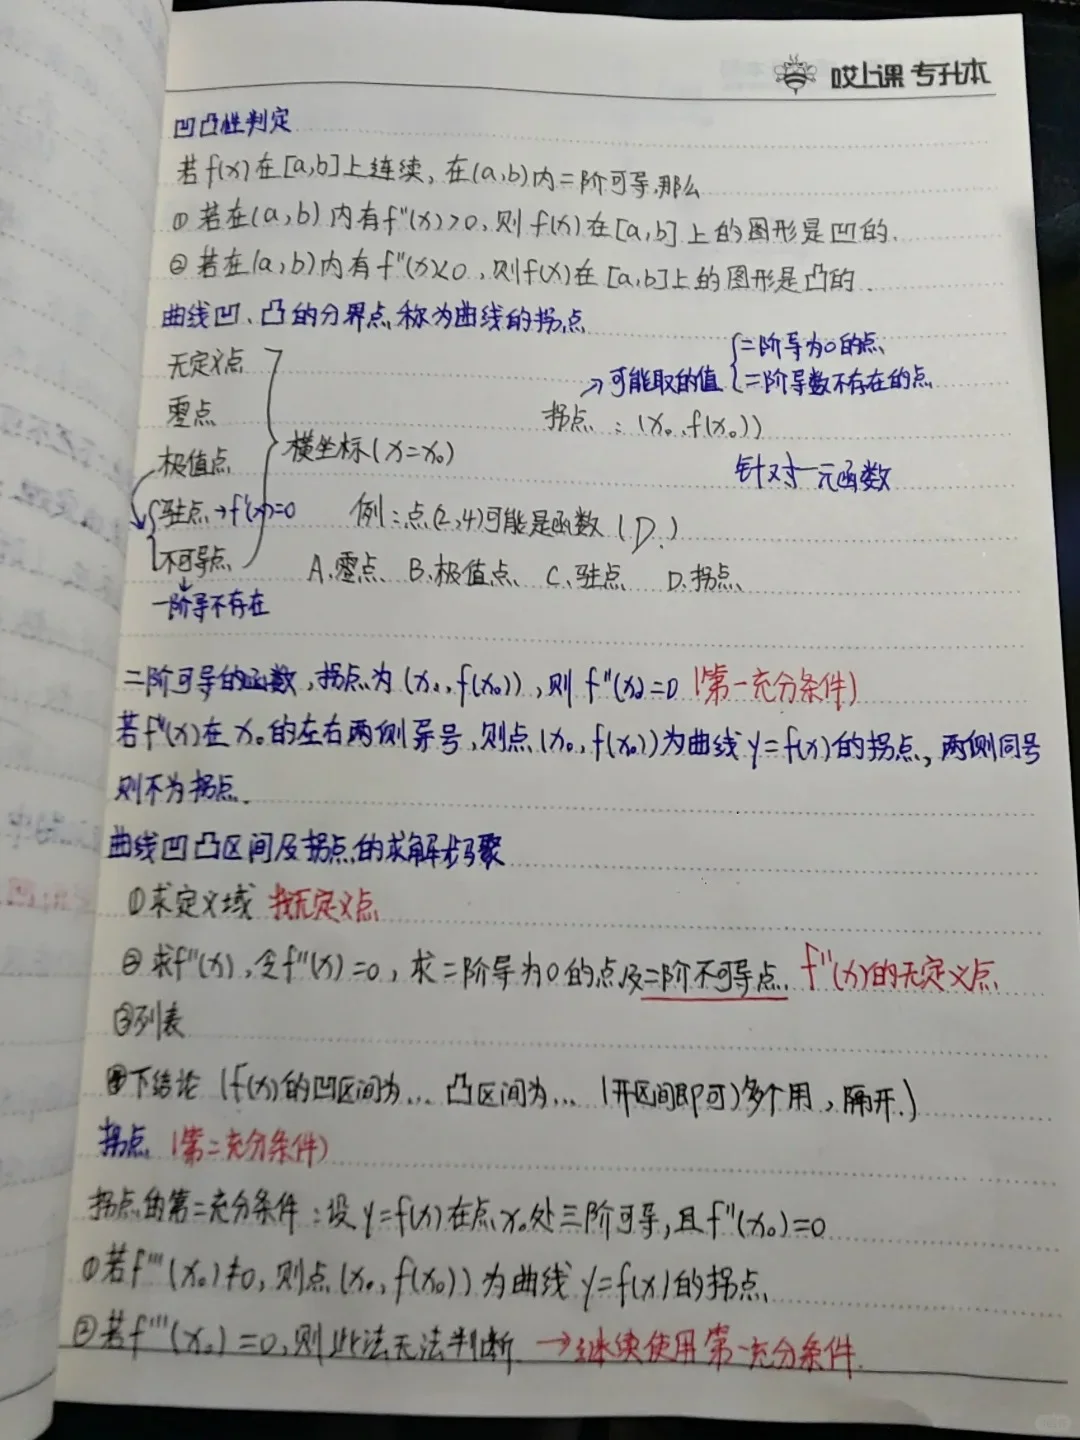 哎上课 专升本
凹凸性判定
若f(x)在[a,b]上连续,在(a,b)内二阶可导,那么
① 若在(a,b)内有f''(x)>0,则f(x)在[a,b]上的图形是凹的.
② 若在(a,b)内有f''(x)<0,则f(x)在[a,b]上的图形是凸的.
曲线凹、凸的分界点称为曲线的拐点
无定义点
零点
极值点
驻点→f'(x)=0
不可导点
一阶导不存在
横坐标(x=x₀)
二阶导为0的点
→可能取的值
二阶导数不存在的点
拐点:(x₀,f(x₀))
针对一元函数
例:点(2,4)可能是函数(D.)
A.零点 B.极值点 C.驻点 D.拐点
二阶可导的函数,拐点为(x₀,f(x₀)),则f''(x)=0(第一充分条件)
若f''(x)在x₀的左右两侧异号,则点(x₀,f(x₀))为曲线y=f(x)的拐点,两侧同号
则不为拐点.
曲线凹凸区间及拐点的求解步骤
①求定义域 找无定义点
②求f''(x),令f''(x)=0,求二阶导为0的点及二阶不可导点. f''(x)的无定义点
③列表
④下结论(f(x)的凹区间为...凸区间为...(开区间即可)多个用,隔开.)
拐点(第二充分条件)
拐点的第二充分条件:设y=f(x)在点x₀处三阶可导,且f''(x₀)=0
①若f'''(x₀)≠0,则点(x₀,f(x₀))为曲线y=f(x)的拐点
②若f'''(x₀)=0,则此法无法判断→继续使用第一充分条件.